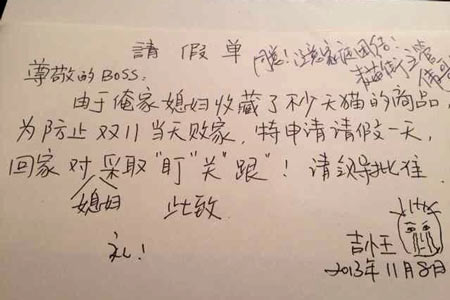 請假单
同意！注意家庭团结！
尊敬的BOSS：
由于俺家媳妇收藏了不少天猫的商品，
为防止双11当天败家，特申请请假一天，
回家对采取"盯""关""跟"！请领导批准
媳妇
此致
礼！
吉小王
2013年11月8日